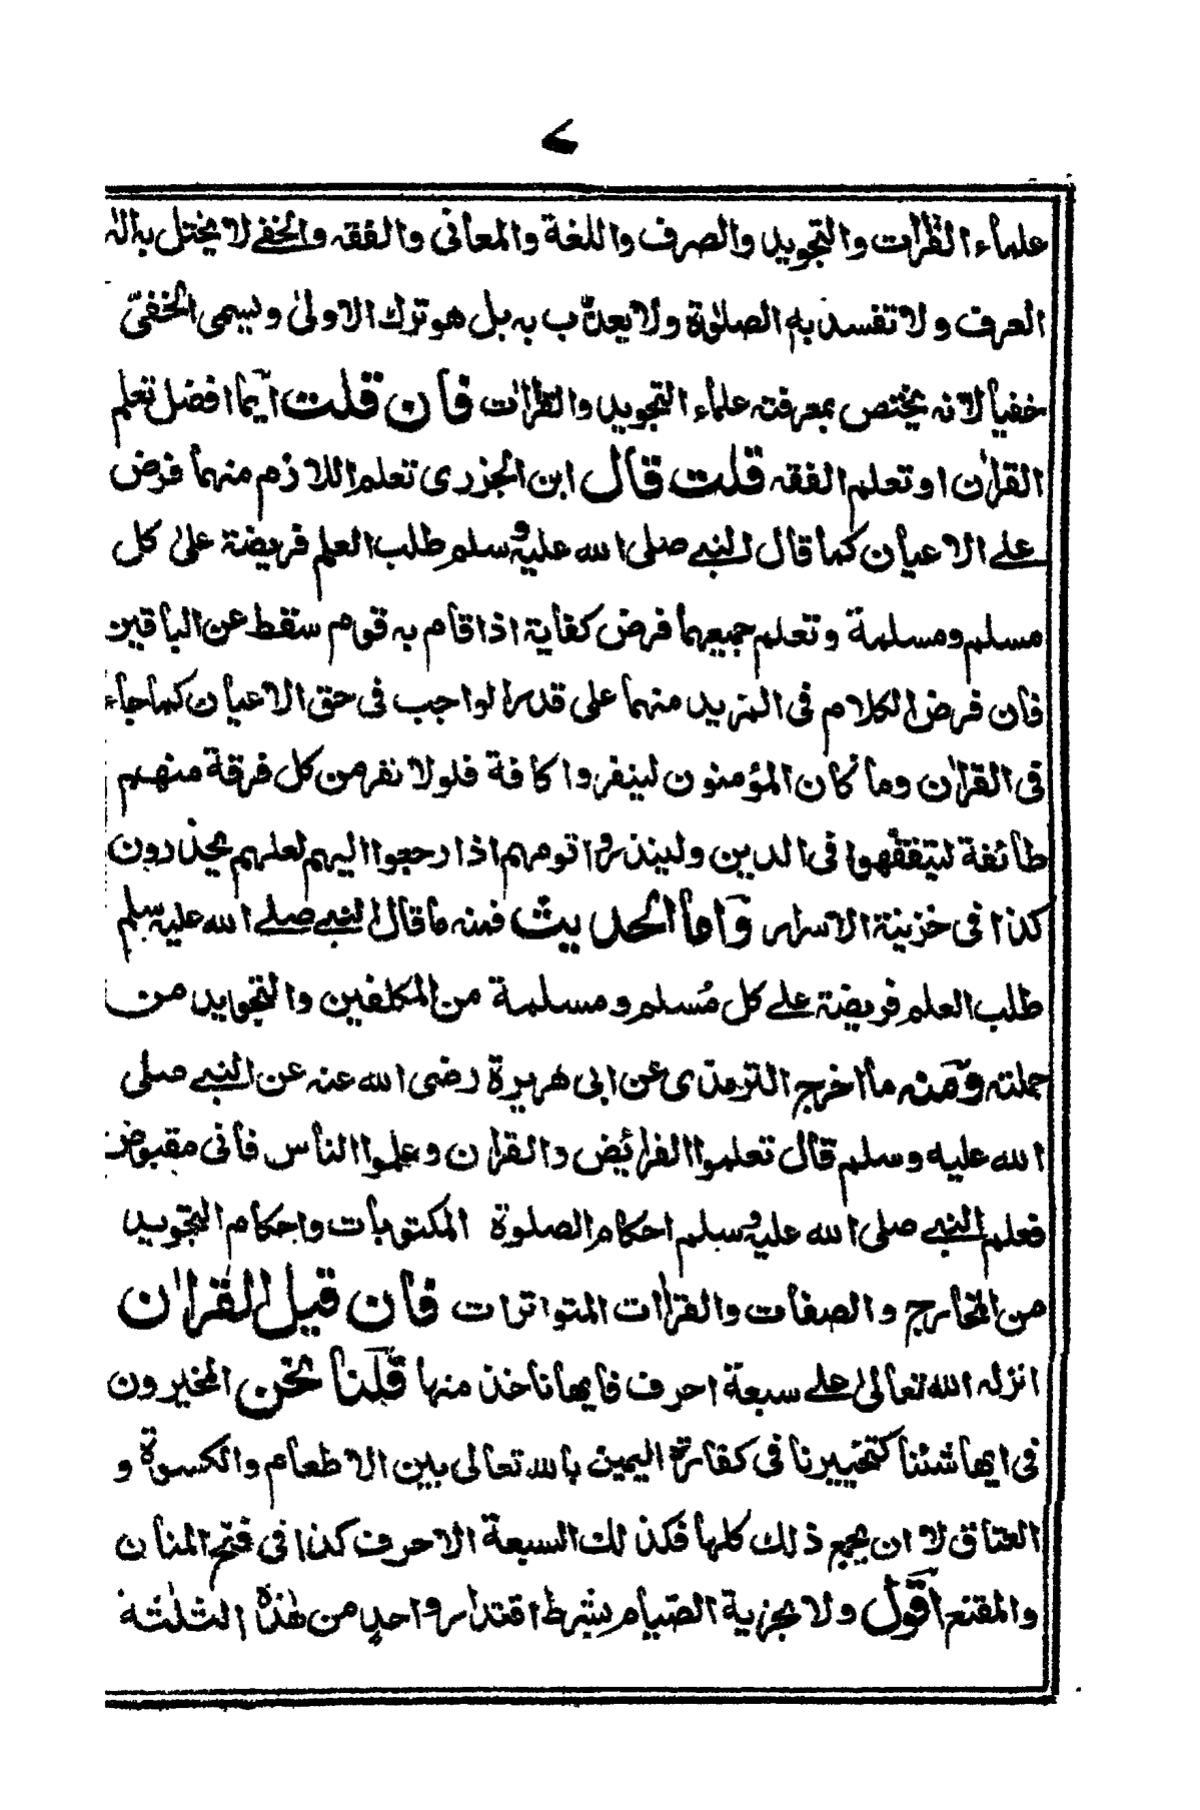 ۷
علماء القرات والتجويد والصرف واللغة والمعانى والفقه والخفے لا يختل به
العرف ولا تفسد به الصلوٰة ولا يعذّب به بل هو ترك الاولىٰ ويسمى الخفىّ
خفيا لانه يختص بمعرفته علماء التجويد والقرات فان قلت ايما افضل تعلم
القراٰن او تعلم الفقه قلت قال ابن الجزرى تعلم اللازم منهما فرض
علے الاعيان كما قال النبے صلى الله عليه وسلم طلب العلم فريضة علىٰ كل
مسلم ومسلمة وتعلم جميعهما فرض كفاية اذا قام به قوم سقط عن الباقين
فان فرض الكلام فى المزيد منهما على قدر الواجب فى حق الاعيان كما جاء
فى القراٰن وما كان المؤمنون لينفروا كافة فلولا نفر من كل فرقة منهم
طائفة ليتفقّهوا فى الدين ولينذروا قومهم اذا رجعوا اليهم لعلهم يحذرون
كذا فى خزينة الاسرار واما الحديث فمنه ما قال النبے صلے الله عليه وسلم
طلب العلم فريضة علے كل مُسلم ومسلمة من المكلفين والتجويد من
جملته ومنه ما اخرج الترمذى عن ابى هريرة رضى الله عنه عن النبے صلى
الله عليه وسلم قال تعلموا الفرائض والقراٰن وعلموا الناس فانى مقبوض
فعلم النبے صلى الله عليه وسلم احكام الصلوة المكتوبات واحكام التجويد
من المخارج والصفات والقرات المتواترات فان قيل القراٰن
انزله الله تعالىٰ علے سبعة احرف فايها ناخذ منها قلنا نحن المخيرون
فى ايها شئنا كتخييرنا فى كفارة اليمين بالله تعالى بين الاطعام والكسوة و
العتاق لا ان يجمع ذلك كلها فكذلك السبعة الاحرف كذا فى فتح المنان
والمقنع اقول ولا يجزية الصّيام بشرط اقتدار واحدٍ من هٰذه الثلٰثة